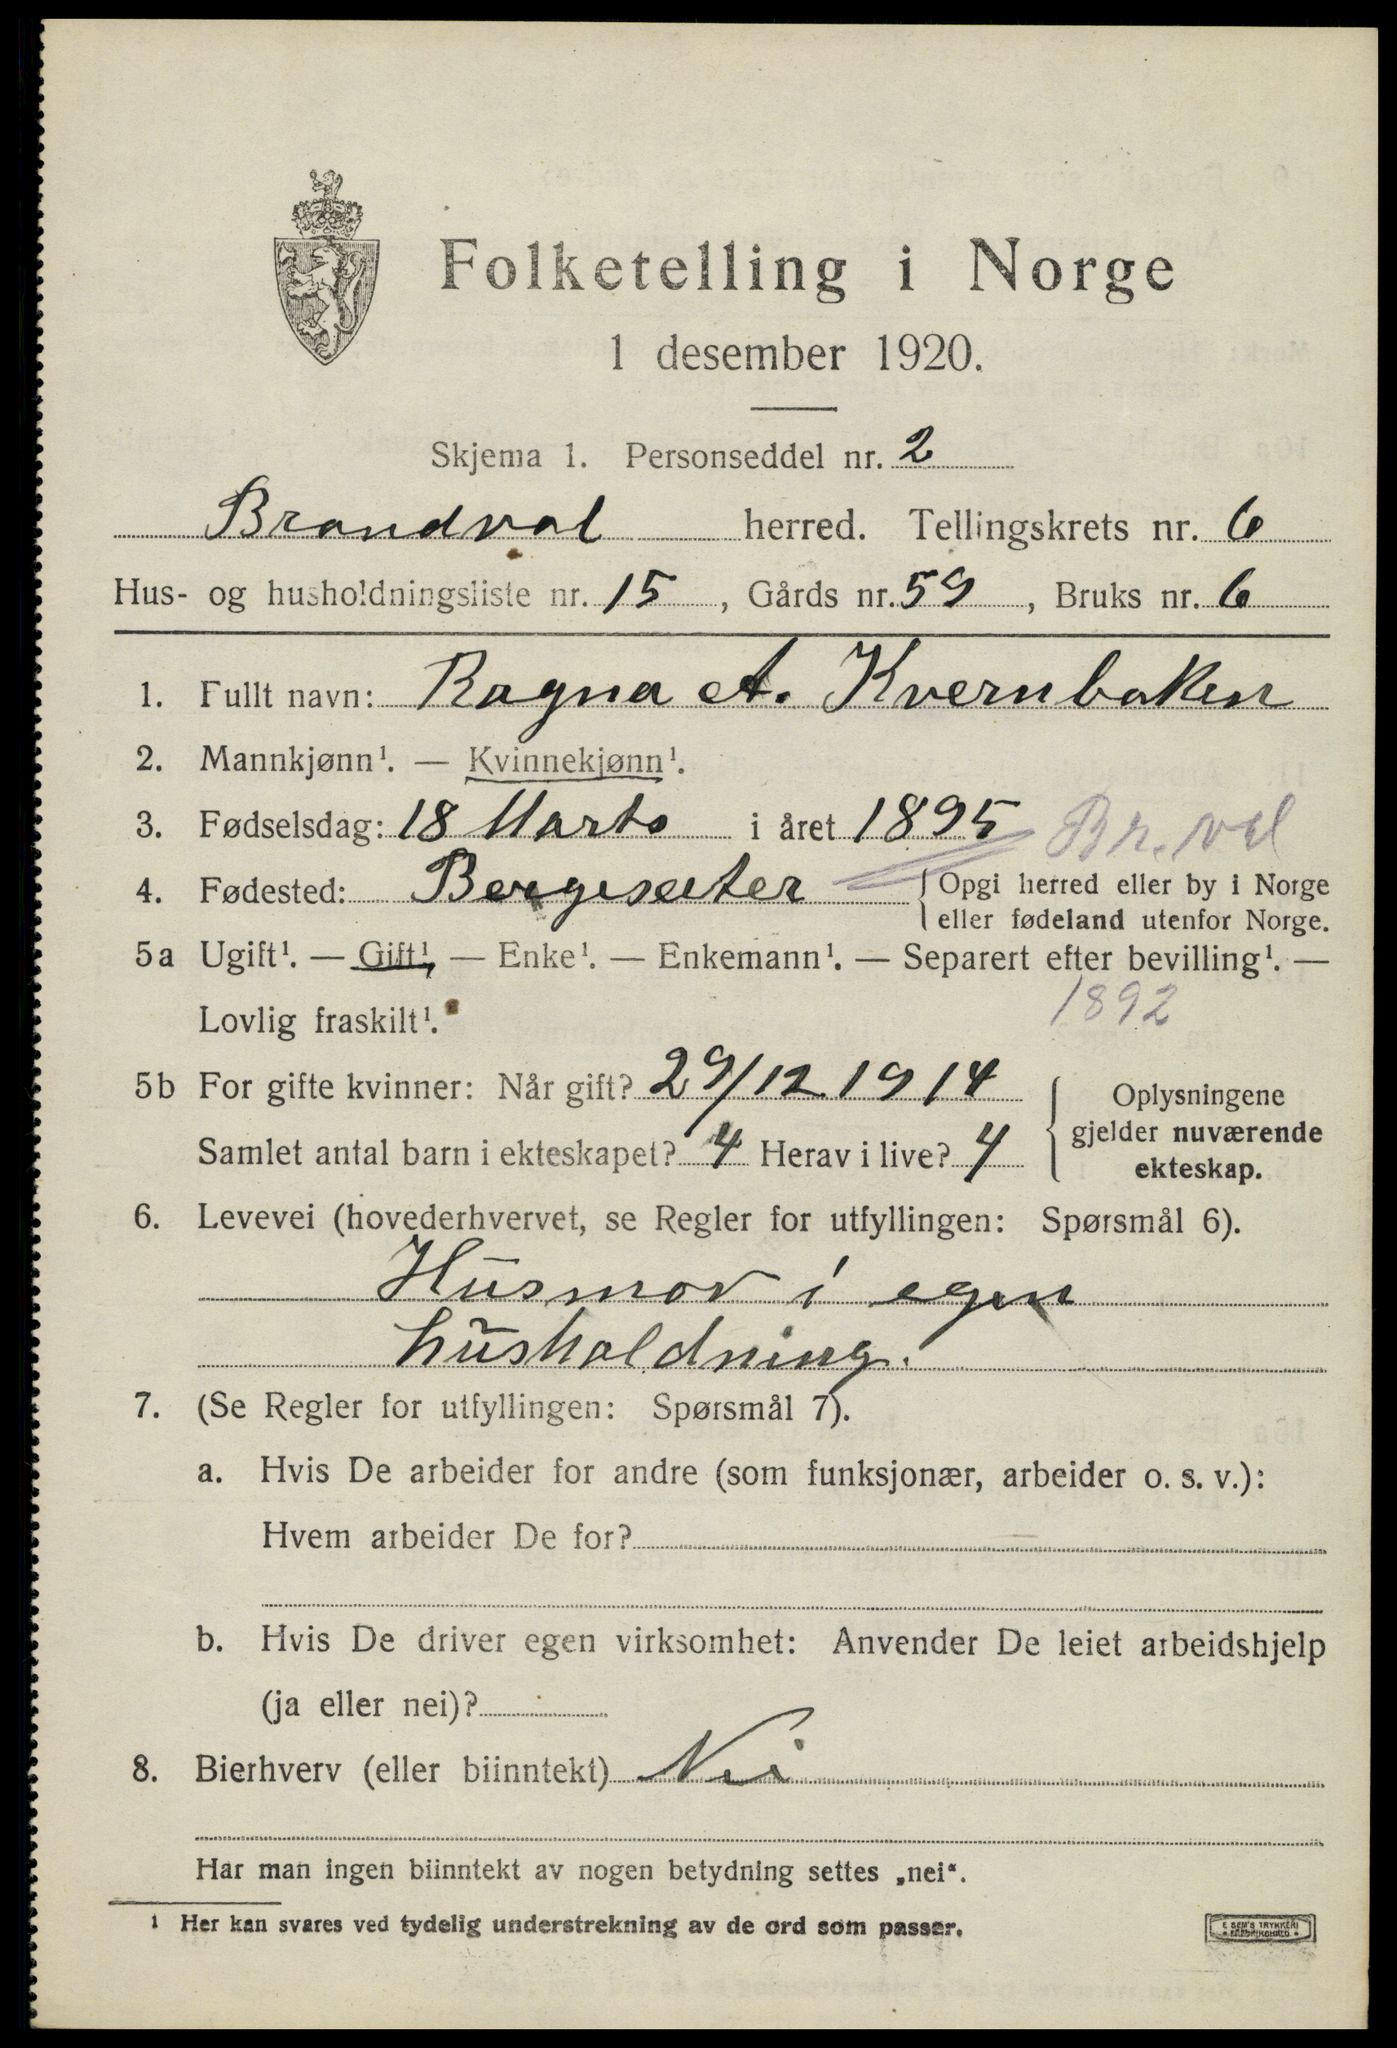 Folketelling i Norge
1 desember 1920.
Skjema 1. Personseddel nr. 2
Brandval herred. Tellingskrets nr. 6
Hus- og husholdningsliste nr. 15, Gårds nr. 59, Bruks nr. 6
1. Fullt navn: Ragna A. Kvernbaken
2. Mannkjønn¹. — Kvinnekjønn¹.
3. Fødselsdag: 18 Marts i året 1895 Br.val
4. Fødested: Bergesæter { Opgi herred eller by i Norge
eller fødeland utenfor Norge.
5a Ugift¹. — Gift¹, — Enke¹. — Enkemann¹. — Separert efter bevilling¹. —
Lovlig fraskilt¹. 1892
5b For gifte kvinner: Når gift? 29/12 1914 { Oplysningene
gjelder nuværende
Samlet antal barn i ekteskapet? 4 Herav i live? 4
ekteskap.
6. Levevei (hovederhvervet, se Regler for utfyllingen: Spørsmål 6).
Husmor i egen
husholdning.
7. (Se Regler for utfyllingen: Spørsmål 7).
a. Hvis De arbeider for andre (som funksjonær, arbeider o. s. v.):
Hvem arbeider De for?
b. Hvis De driver egen virksomhet: Anvender De leiet arbeidshjelp
(ja eller nei)?
8. Bierhverv (eller biinntekt) Nei
Har man ingen biinntekt av nogen betydning settes „nei“.
¹ Her kan svares ved tydelig understrekning av de ord som passer.
E. SEM'S TRYKKERI
FREDRIKSHALD